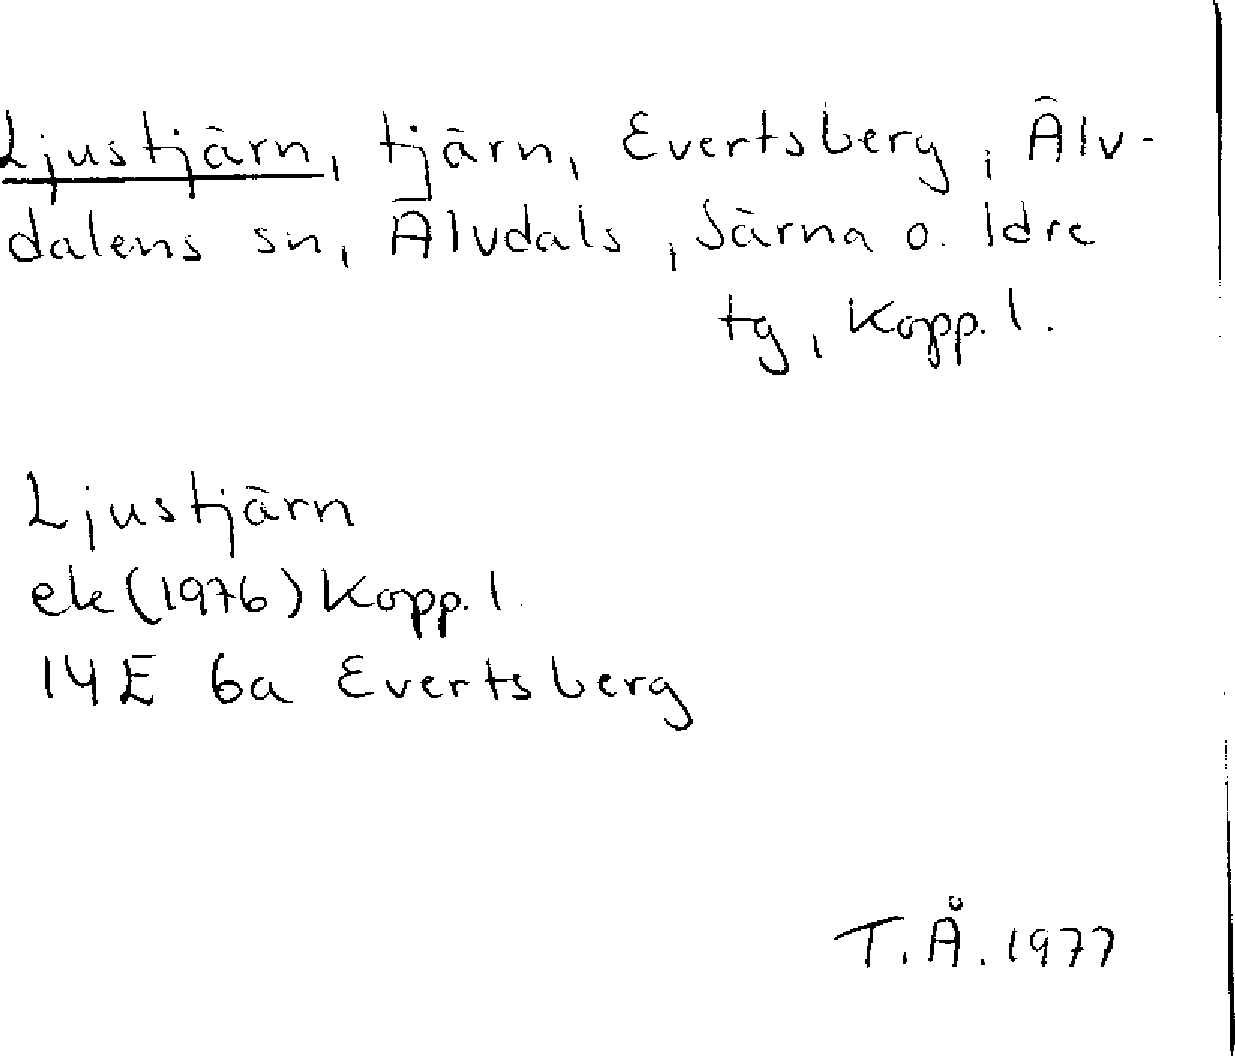 Ljustjärn, tjärn, Evertsberg, Älv-
dalens sn, Älvdals, Särna o. Idre
tg, Kopp. l.
Ljustjärn
ek (1976) Kopp. l.
14E 6a Evertsberg
T. Å. 1977